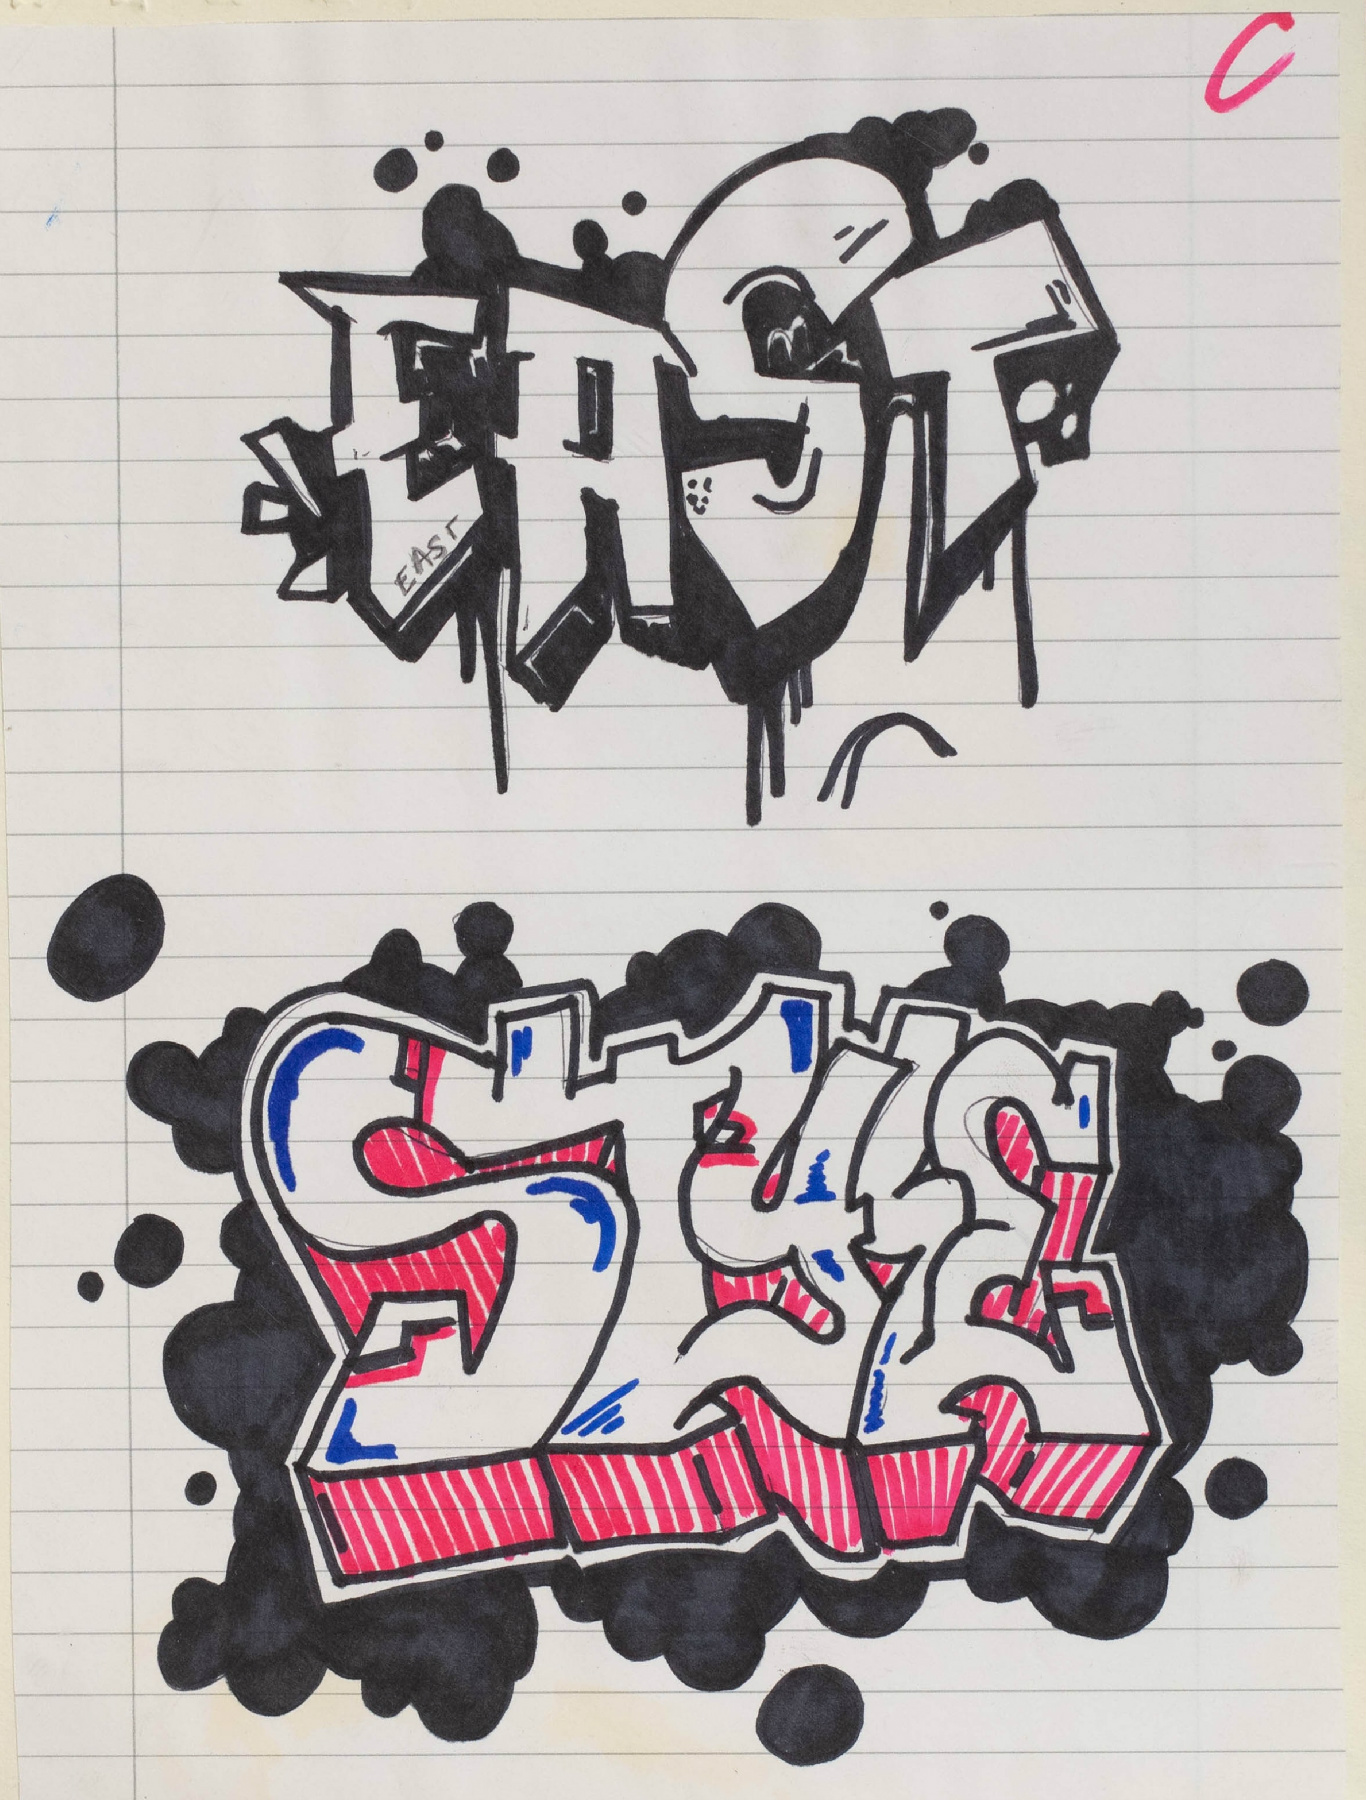 C
EAST
EAST
STYLE